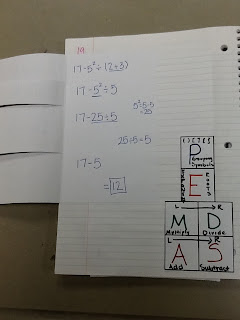 19.
17-5²÷(2+3)
17-5²÷5
5²=5·5
=25
17-25÷5
25÷5=5
17-5
=12
P
Grouping
Symbols
E
M
Multiply
D
Divide
L → R
A
Add
S
Subtract
L → R